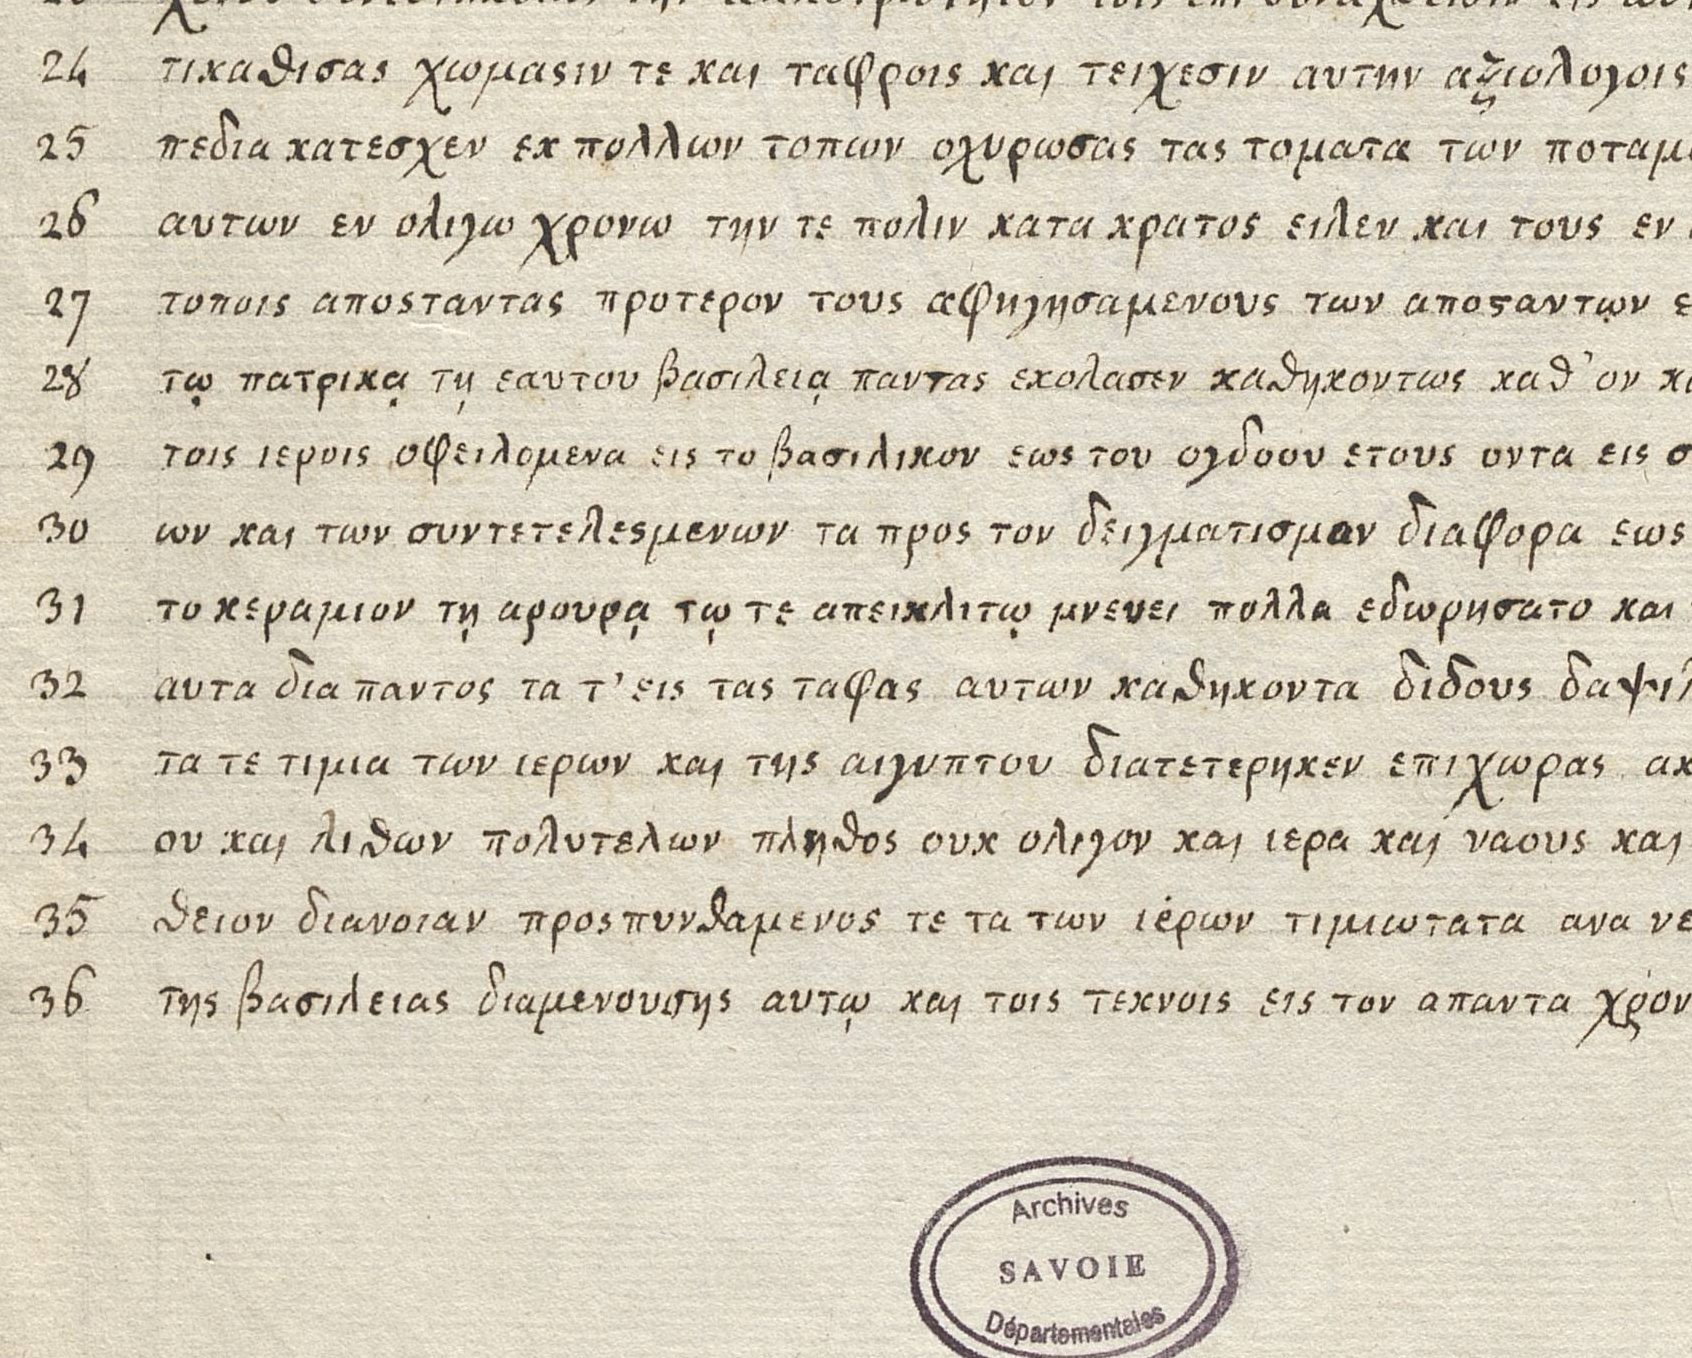 24 τικαθισας χωμασιν τε και ταφροις και τειχεσιν αυτην αξιολογοις
25 πεδια κατεσχεν εκ πολλων τοπων οχυρωσας τας τοματα των ποταμ
26 αυτων εν ολιγω χρονω την τε πολιν κατα κρατος ειλεν και τους εν
27 τοποις αποσταντας προτερον τους αφηγησαμενους των αποςαντων ε
28 τῳ πατρικᾳ τῃ εαυτου βασιλειᾳ παντας εκολασεν καθηκοντως καθ' ον κα
29 τοις ιεροις οφειλομενα εις το βασιλικον εως του ογδοου ετους οντα εις σ
30 ων και των συντετελεσμενων τα προς τον δειγματισμον διαφορα εως
31 το κεραμιον τῃ αρουρᾳ τῳ τε απεικλιτῳ μνενει πολλα εδωρησατο και
32 αυτα δια παντος τα τ' εις τας ταφας αυτων καθηκοντα διδους δαψιλ
33 τα τε τιμια των ιερων και της αιγυπτου διατετερηκεν επι χωρας ακ
34 ου και λιθων πολυτελων πληθος ουκ ολιγον και ιερα και ναους και
35 θειον διανοιαν προσπυνθαμενος τε τα των ιερων τιμιωτατα ανα νε
36 της βασιλειας διαμενουσης αυτῳ και τοις τεκνοις εις τον απαντα χρον
Archives
SAVOIE
Départementales